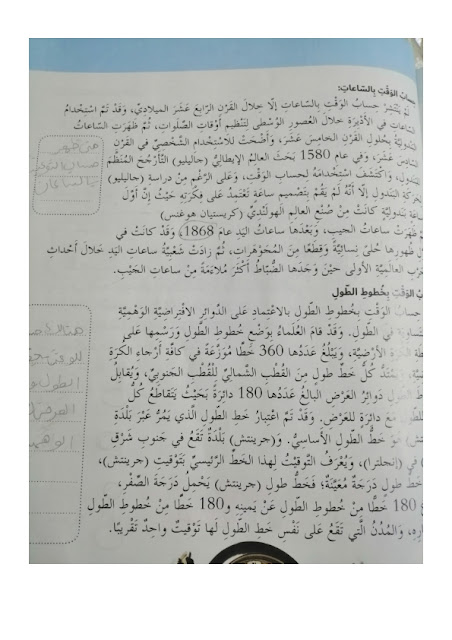 حساب الوَقْتِ بِالسّاعاتِ:
يَنْتَشِرْ حِسابُ الوَقْتِ بِالسّاعاتِ إلّا خِلالَ القَرْنِ الرّابِعَ عَشَرَ الميلاديِّ، وَقَدْ تَمَّ اسْتِخْدامُ
السّاعاتِ في الأَدْيِرَةِ خِلالَ العُصورِ الوُسْطى لِتَنْظيمِ أَوْقاتِ الصَّلَواتِ، ثُمَّ ظَهَرَتِ السّاعاتُ
البَنْدوليَّةُ بِحُلولِ القَرْنِ الخامِسَ عَشَرَ، وَأَضْحَتْ لِلاسْتِخْدامِ الشَّخْصيِّ في القَرْنِ
عَشَرَ، وَفي عام 1580 بَحَثَ العالِمُ الإيطاليُّ (جاليليو) التَّأَرْجُحَ المُنَظَّمَ
لِلبَنْدولِ، وَاكْتَشَفَ اسْتِخْدامَهُ لِحِسابِ الوَقْتِ، وَعَلى الرَّغْمِ مِنْ دِراسَةِ (جاليليو)
حَرَكَةَ البَنْدولِ إلّا أَنَّهُ لَمْ يَقُمْ بِتَصْميمِ ساعَةٍ تَعْتَمِدُ عَلى فِكْرَتِهِ حَيْثُ إنَّ أَوَّلَ
ساعَةٍ بَنْدوليَّةٍ كانَتْ مِنْ صُنْعِ العالِمِ الهولَنْديِّ (كريستيان هوغنس)
ظَهَرَتْ ساعاتُ الجيبِ، وَبَعْدَها ساعاتُ اليَدِ عامَ 1868، وَقَدْ كانَتْ في
ظُهورِها حُلىً نِسائيَّةً وَقِطَعًا مِنَ المُجَوْهَراتِ، ثُمَّ زادَتْ شَعْبيَّةُ ساعاتِ اليَدِ خِلالَ أَحْداثِ
الحَرْبِ العالَميَّةِ الأولى حينَ وَجَدَها الضُّبّاطُ أَكْثَرَ مُلاءَمَةً مِنْ ساعاتِ الجَيْبِ.
الوَقْتِ بِخُطوطِ الطّولِ
حِسابُ الوَقْتِ بِخُطوطِ الطّولِ بِالاعْتِمادِ عَلى الدَّوائِرِ الافْتِراضيَّةِ الوَهْميَّةِ
في الطّولِ. وَقَدْ قامَ العُلَماءُ بِوَضْعِ خُطوطِ الطّولِ وَرَسْمِها عَلى
الكُرَةِ الأَرْضيَّةِ، وَيَبْلُغُ عَدَدُها 360 خَطًّا مُوَزَّعَةً في كافَّةِ أَرْجاءِ الكُرَةِ
وَيَمْتَدُّ كُلُّ خَطِّ طولٍ مِنَ القُطْبِ الشَّماليِّ لِلْقُطْبِ الجَنوبيِّ، وَيُقابِلُ
الطّولِ دَوائِرُ العَرْضِ البالِغُ عَدَدُها 180 دائِرَةً بِحَيْثُ يَتَقاطَعُ كُلُّ
مَعَ دائِرَةٍ لِلعَرْضِ. وَقَدْ تَمَّ اعْتِبارُ خَطِّ الطّولِ الَّذي يَمُرُّ عَبْرَ بَلْدَةِ
هُوَ خَطُّ الطّولِ الأَساسيِّ. وَ(جرينتش) بَلْدَةٌ تَقَعُ في جَنوبِ شَرْقِ
في (إنجلترا)، وَيُعْرَفُ التَّوْقيتُ لِهذا الخَطِّ الرَّئيسيِّ بِتَوْقيتِ (جرينتش)،
خَطِّ طولٍ دَرَجَةٌ مُعَيَّنَةٌ؛ فَخَطُّ طولِ (جرينتش) يَحْمِلُ دَرَجَةَ الصِّفْرِ،
180 خَطًّا مِنْ خُطوطِ الطّولِ عَنْ يَمينِهِ وَ180 خَطًّا مِنْ خُطوطِ الطّولِ
وَالمُدُنُ الَّتي تَقَعُ عَلى نَفْسِ خَطِّ الطّولِ لَها تَوْقيتٌ واحِدٌ تَقْريبًا.